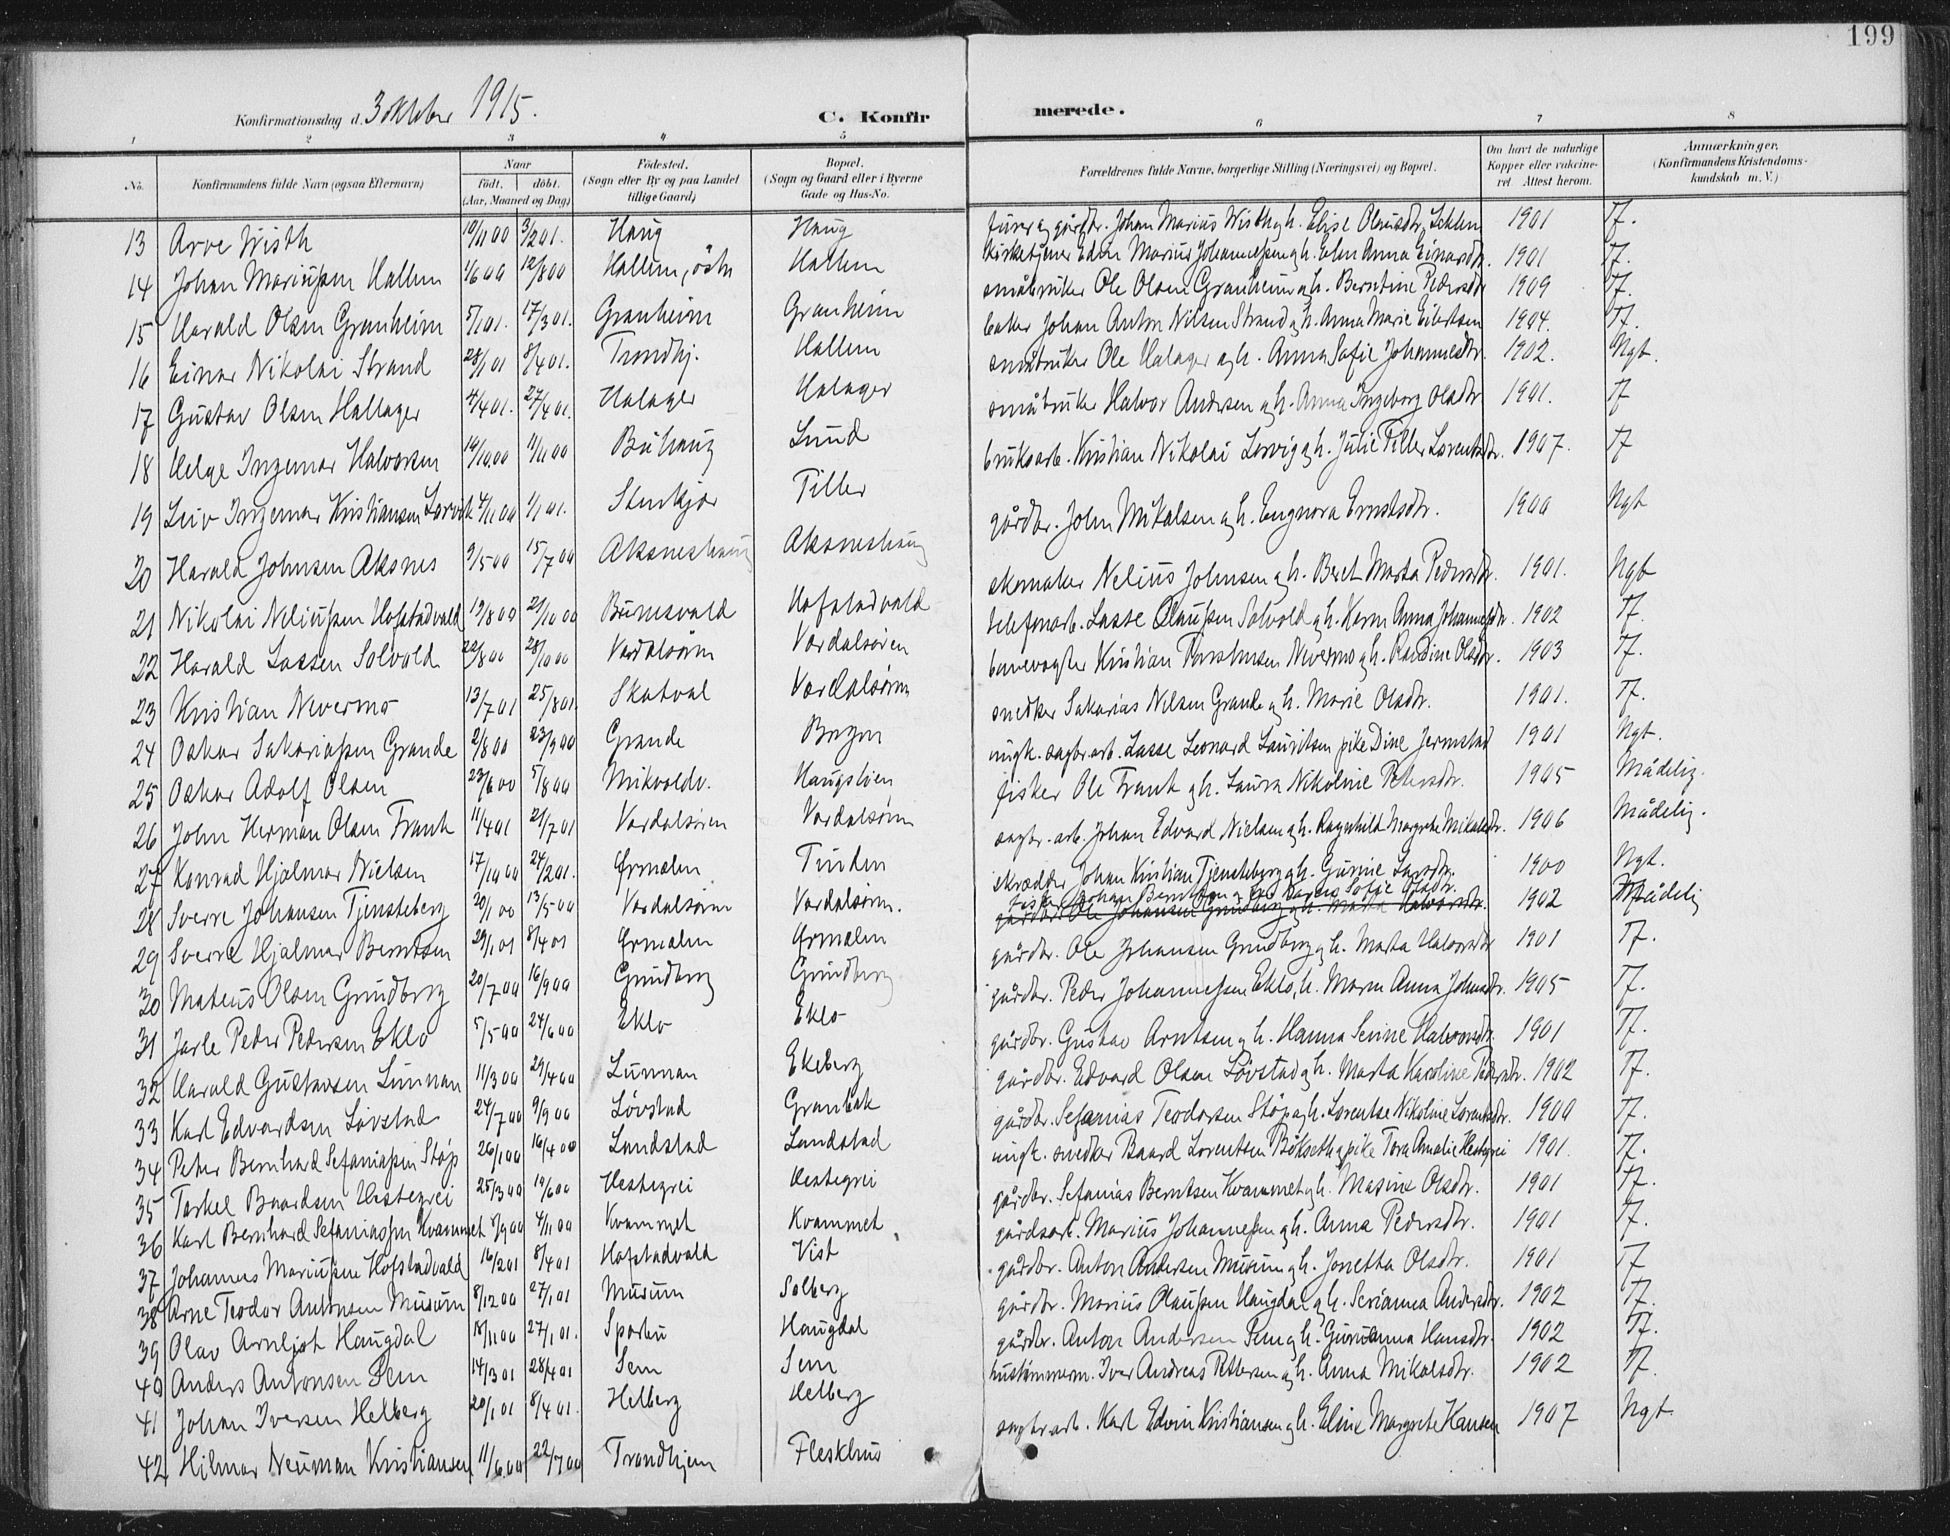 199
Konfirmationsdag d. 3 oktober 1915.
C. Konfir merede.
1 2 3 4 5 6 7 8
No. Konfirmandens fulde Navn (ogsaa Efternavn) Naar født, døbt. (Aar, Maaned og Dag) Fødested. (Sogn eller By og paa Landet tillige Gaard) Bopæl. (Sogn og Gaard eller i Byerne Gade og Hus-No. Forældrenes fulde Navne, borgerlige Stilling (Næringsvei) og Bopæl. Om havt de naturlige Kopper eller vaccineret. Attest herom. Anmærkninger. (Konfirmandens Kristendomskundskab m. V.)
13 Arve Wisth 10/11 00 3/2 01. Haug Haug gårdbr. Johan Marius Wisth og h. Elise Olausdtr. 1901 Tf.
14 Johan Mariussen Hallem 1/6 00 12/8 00 Hallem, Hallem kirketjener Edvin Marius Johannessen og h. Elen Anna Einarsdtr. 1901 Tf.
15 Harald Olsen Granheim 5/1 01. 17/3 01. Granheim Granheim småbruker Ole Olsen Granheim og h. Berntine Pedersdtr 1909 Tf.
16 Einar Nikolai Strand 28/1 01 8/4 01. Trondhj. Hallem baker Johan Anton Nilsen Strand og h. Anna Marie Eilertsen 1904. Tf.
17 Gustav Olsen Hallager 4/4 01. 27/4 01. Halager Halager småbruker Ole Halager og h. Anna Sofie Johannesdtr. 1902. Ngt.
18 Helge Ingemar Halvorsen 19/10 00 11/11 00 Buhaug Lund småbruker Halvor Andersen og h. Anna Ingeborg Olsdtr 1901. Tf
19 Leiv Ingemar Kristiansen Lorvik 4/11 00 1/1 01. Stenkjær Tiller bruksarb. Kristian Nikolai Lorvig og h. Julie Tiller Lorentsdtr. 1907. Tf
20 Harald Johnsen Aksnes 9/5 00 15/7 00 Aksneshaug Aksneshaug gårdbr. John Mikalsen og h. Engnora Ernstsdtr. 1900 Ngt
21 Nikolai Neliussen Hofstadvald 19/8 00 21/10 00 Bunesvald Hofstadvald skomaker Nelius Johnsen og h. Beret Marta Pedersdtr. 1901. Ngt
22 Harald Lassen Solvold 22/8 00 28/10 00 Værdalsøren Værdalsøren telefonarb. Lasse Olaussen Solvold og h. Karen Anna Johannesdtr. 1902 Tf.
23 Kristian Nevermo 13/7 01 25/8 01. Skatval Værdalsøren banevogter Kristian Nevermo og h. Olsdtr. 1903 Tf.
24 Oskar Sakariassen Grande 2/8 00 23/9 00 Grande Borgen snedker Sakarias Nilsen Grande og h. Marie Olsdtr. 1901. Tf.
25 Oskar Adolf Olsen 23/6 00 5/8 00 Mikvoldv. Haugsløen ungk. sagbr.arb. Lasse Leonard Lauritsen pike Dine Jermstad 1901 Ngt.
26 John Herman Olsen Frank 11/4 01 21/7 01 Værdalsøren Værdalsøren fisker Ole Frank og h. Laura Nikoline Petersdtr. 1905 Mådelig.
27 Konrad Hjalmar Nielsen 17/10 00 24/2 01. Ørmelen Tinden sagbr.arb. Johan Edvard Nielsen og h. Ragnhild Margrete Mikalsdtr. 1906 Mådelig.
28 Sverre Johansen Tjensteberg 20/1 00 13/5 00 Værdalsøren Værdalsøren. skrædder Johan Kristian Tjensteberg og h. Gurine Larsdtr. 1900 Ngt.
29 Sverre Hjalmar Berntsen 29/1 01 8/4 01 Ørmelen Ørmelen fisker Johan Berntsen og h. Karen Sofie Olsdtr. 1902 Mådelig
gårdbr. Ole Johansen Grundberg og h. Marta Halvorsdtr.
30 Mateus Olsen Grundberg 20/7 00 16/9 00 Grundberg Grundberg gårdbr. Ole Johansen Grundberg og h. Marta Halvorsdtr 1901 Tf.
31 Jarle Peder Pedersen Eklo 5/5 00 24/6 00 Eklo Eklo gårdbr. Peder Johannessen Eklo, h. Maren Anna Johnsdtr. 1905 Tf.
32 Harald Gustavsen Lunnan 11/3 00 29/4 00 Lunnan Ekeberg gårdbr. Gustav Arntsen og h. Hanna Serine Halvorsdtr. 1901 Tf.
33 Karl Edvardsen Løvstad 24/7 00 9/9 00 Løvstad Granbak gårdbr. Edvard Olsen Løvstad og h. Marta Karoline Pedersdtr. 1902 Tf.
34 Peter Bernhard Sefaniassen Støp 26/1 00 16/4 00 Landstad Landstad gårdbr. Sefanias Teodorsen Støp og h. Lorentse Nikoline Lorentsdtr. 1900 Tf.
35 Torkel Baardsen Hestegrei 25/3 00 10/6 00 Hestegrei Hestegrei ungk. snedker Baard Lorentsen Bøkseth og pike Tora Amalie Hestegrei 1901. Tf.
36 Karl Bernhard Sefaniassen Kvammet 1/9 00 4/11 00 Kvammet Kvammet gårdbr. Sefanias Berntsen Kvammet og h. Masine Olsdtr. 1901 Tf.
37 Johannes Mariussen Hofstadvald 16/2 01 8/4 01 Hofstadvald Vist gårdsarb. Marius Johannessen og h. Anna Pedersdtr. 1901 Tf.
38 Arne Teodor Antonsen Musum 8/12 00 27/1 01 Musum Solberg gårdbr. Anton Andersen Musum og h. Jonetta Olsdtr. 1901 Tf
39 Olav Arnljot Haugdal 18/11 00 27/1 01. Sparbu Haugdal gårdbr. Marius Olaussen Haugdal og h. Serianna Andersdtr. 1902 Tf.
40 Anders Antonsen Sem 14/3 01 28/4 01 Sem Sem gårdbr. Anton Andersen Sem og h. Gurianna Hansdtr. 1902 Tf.
41 Johan Iversen Helberg 20/1 01 8/4 01. Helberg Helberg hustømmerm. Iver Andreas Pettersen og h. Anna Mikalsdtr. 1902 Tf.
42 Hilmar Neuman Kristiansen 11/6 00 22/7 00 Trondhjem Fleskhus sagbr.arb. Karl Edvin Kristiansen og h. Eline Margrete Hansen 1907 Ngt.